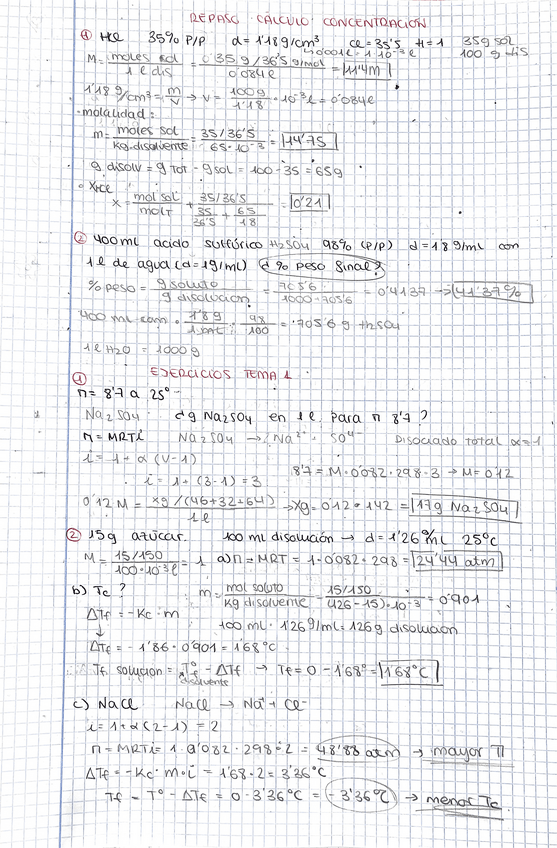 REPASO CÁLCULO CONCENTRACIÓN
① HCl 35% P/P d=1'18g/cm³ Cl=35'5 H=1 35g sol
100 g dis
M= moles sol / 1 l dis = 0'35g/36'5g/mol / 0'084l = 11'4m
1'18g/cm³= m/v → v= 100g/1'18 · 10⁻³l = 0'084l
-molalidad:
m= moles sol / Kg disolvente = 35/36'5 / 65·10⁻³ = 14'75
g disolv = g TOT - g sol = 100-35 = 65g
∘ XHCl
x= mol sol / mol T + 35/36'5 / 35/36'5 + 65/18 = 0'21
② 400ml acido sulfúrico H2SO4 98% (P/P) d=1'8g/ml con
1l de agua (d=1g/ml) d % peso final?
% peso = g soluto / g disolucion = 705'6 / 1000+705'6 = 0'4137 → 41'37%
400 ml com · 1'8g / 1 ml · 98/100 = 705'6 g H2SO4
1l H2O = 1000g
EJERCICIOS TEMA 1
①
π= 8'7 a 25°
Na2SO4 d g Na2SO4 en 1l. para π 8'7?
π=MRTi Na2SO4 → Na²⁺ + SO⁴⁻ Disociado total α=1
i=1+α(V-1)
i=1+(3-1)=3 8'7= M·0'082·298·3 → M=0'12
0'12M = xg/(46+32+64) / 1l → Xg=0'12·142 = 17g Na2SO4
② 15g azúcar. 100 ml disolución → d=1'26 g/ml 25°C
M= 15/150 / 100·10⁻³l = 1 a) π=MRT = 1·0'082·298 = 24'44 atm
b) Tc? m= mol soluto / Kg disolvente = 15/150 / (126-15)·10⁻³ = 0'901
ΔTf=-Kc·m
100 ml · 1'26g/ml=126g disolución
ΔTf=-1'86·0'901=1'68°C
Tf solución = T°f disolvente - ΔTf → Tf=0-1'68°= 1'68°C
c) NaCl NaCl → Na⁺+Cl⁻
i=1+α(2-1)=2
π=MRTi= 1·0'082·298·2 = 48'88 atm → mayor π
ΔTf=-Kc·m·i = 1'68·2=3'36°C
Tf = T° - ΔTf = 0-3'36°C = -3'36°C → menor Tc.